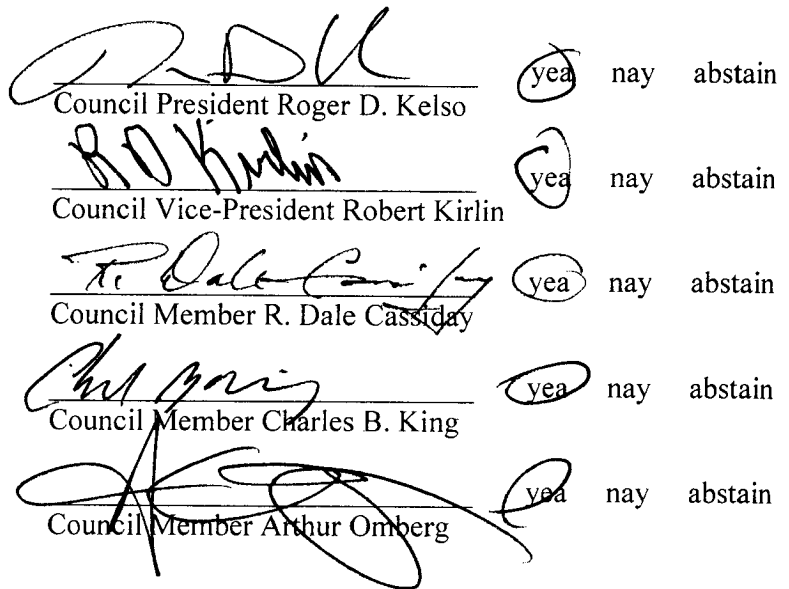 yea nay abstain
Council President Roger D. Kelso
R D Kirlin yea nay abstain
Council Vice-President Robert Kirlin
R. Dale Cassiday yea nay abstain
Council Member R. Dale Cassiday
yea nay abstain
Council Member Charles B. King
yea nay abstain
Council Member Arthur Omberg